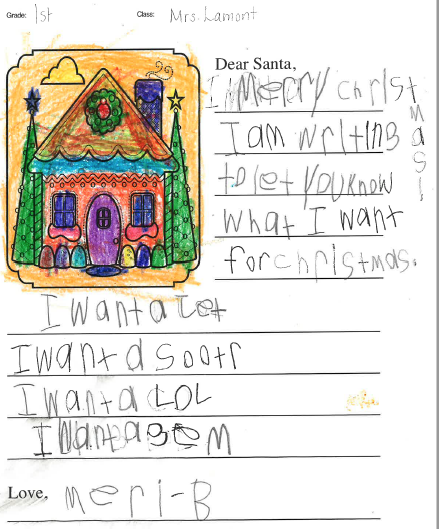 Grade: 1st Class: Mrs. Lamont
Dear Santa,
Merry christmas!
I am writing
to let you know
what I want
for christmas.
I want a Let
I want a Sootr
I want a LOL
I want a gem
Love, meri-B